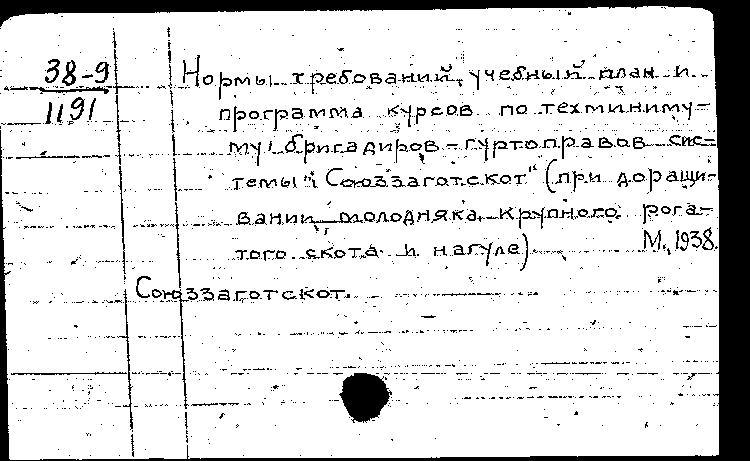 38-9
1191
Нормы требований, учебный план и
программа курсов по техминиму-
му бригадиров-гуртоправов сис-
темы "Союззаготскот" (при доращи-
вании молодняка крупного рога-
того скота и нагуле) М., 1938.
Союззаготскот.